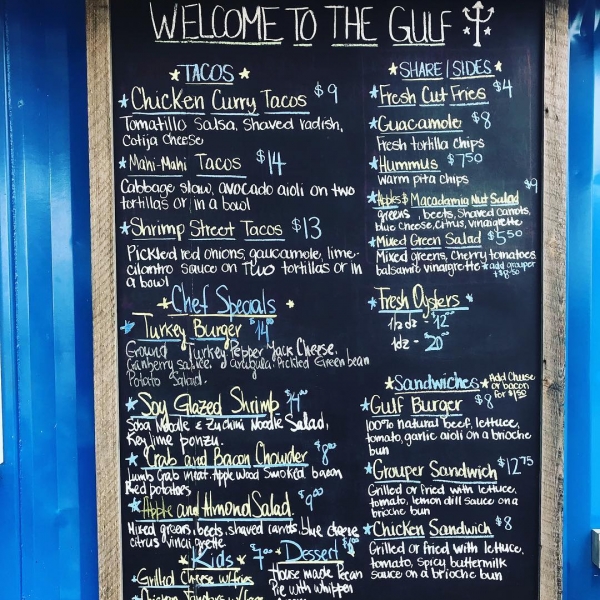 WELCOME TO THE GULF
TACOS
Chicken Curry Tacos $9
Tomatillo Salsa, shaved radish,
Cotija cheese
Mahi-Mahi Tacos $14
Cabbage slaw, avocado aioli on two
tortillas or in a bowl
Shrimp Street Tacos $13
Pickled red onions, guacamole, lime-
cilantro sauce on two tortillas or in
a bowl
Chef Specials
Turkey Burger $14
Ground Turkey, Pepper Jack Cheese,
Cranberry sauce, Arugula, Pickled Green bean
Potato Salad.
Soy Glazed Shrimp $14
Soba Noodle & Zuchini Noodle Salad,
Key lime ponzu.
Crab and Bacon Chowder $8
Lumb Crab meat, Apple wood smoked bacon
Red potatoes
Apple and Almond Salad. $9
Mixed greens, beets, shaved carrots, blue cheese
citrus vinaigrette
Kids 7
Grilled Cheese w/fries
Chicken Tenders w/fries
Dessert
House made Pecan
Pie with whippen
SHARE | SIDES
Fresh Cut Fries $4
Guacamole $8
Fresh tortilla chips
Hummus $7.50
Warm pita chips
Apples & Macadamia Nut Salad $9
greens, beets, shaved carrots,
blue cheese, citrus, vinaigrette
Mixed Green Salad $5.50
Mixed greens, cherry tomatoes
balsamic vinaigrette *add grouper
Fresh Oysters
1/2 dz - 12
1 dz - 20
Sandwiches
Add Cheese
or bacon
for $1.50
Gulf Burger $8
100% natural beef, lettuce,
tomato, garlic aioli on a brioche
bun
Grouper Sandwich $12.75
Grilled or fried with lettuce,
tomato, lemon dill sauce on a
brioche bun
Chicken Sandwich $8
Grilled or fried with lettuce,
tomato, spicy buttermilk
sauce on a brioche bun